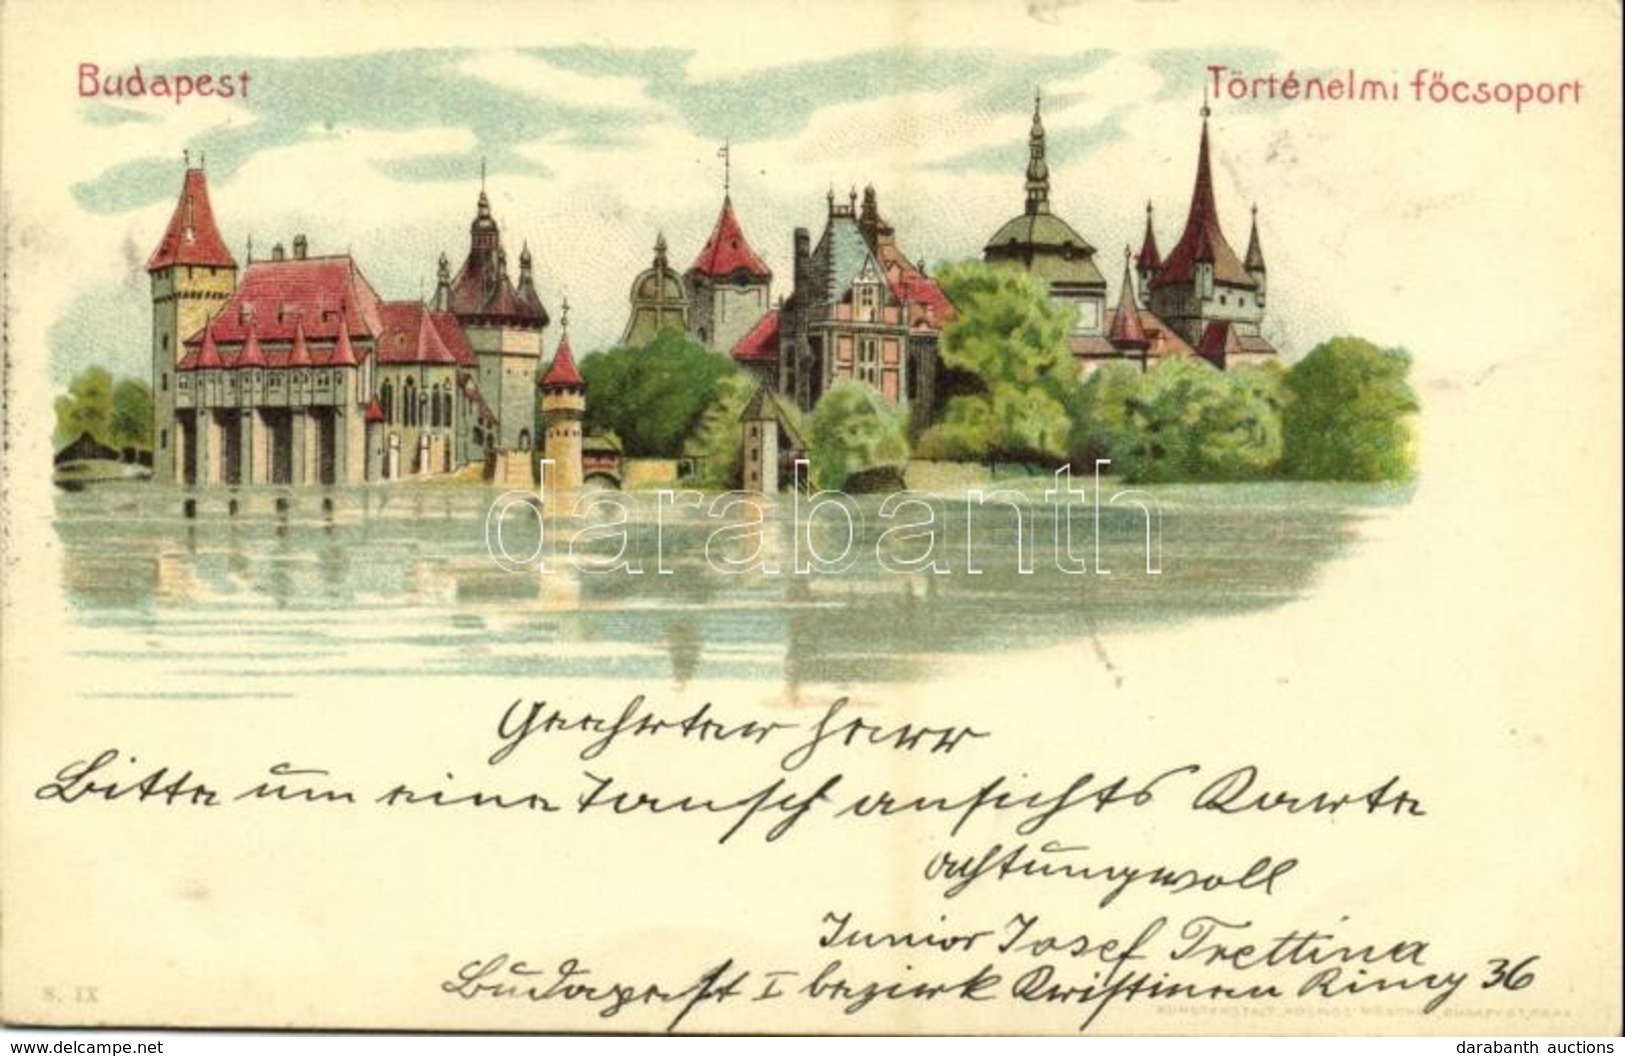 Budapest
Történelmi főcsoport
darabanth
Geehrter Herr
Bitte um eine Tausch ansichts Karte
achtungsvoll
Junior Josef Trettina
Budapest I bezirk Kristinen Ring 36
S. IX
KUNSTANSTALT KOSMOS MÜNCHEN, BUDAPEST, PRAG
www.delcampe.net
darabanth auctions